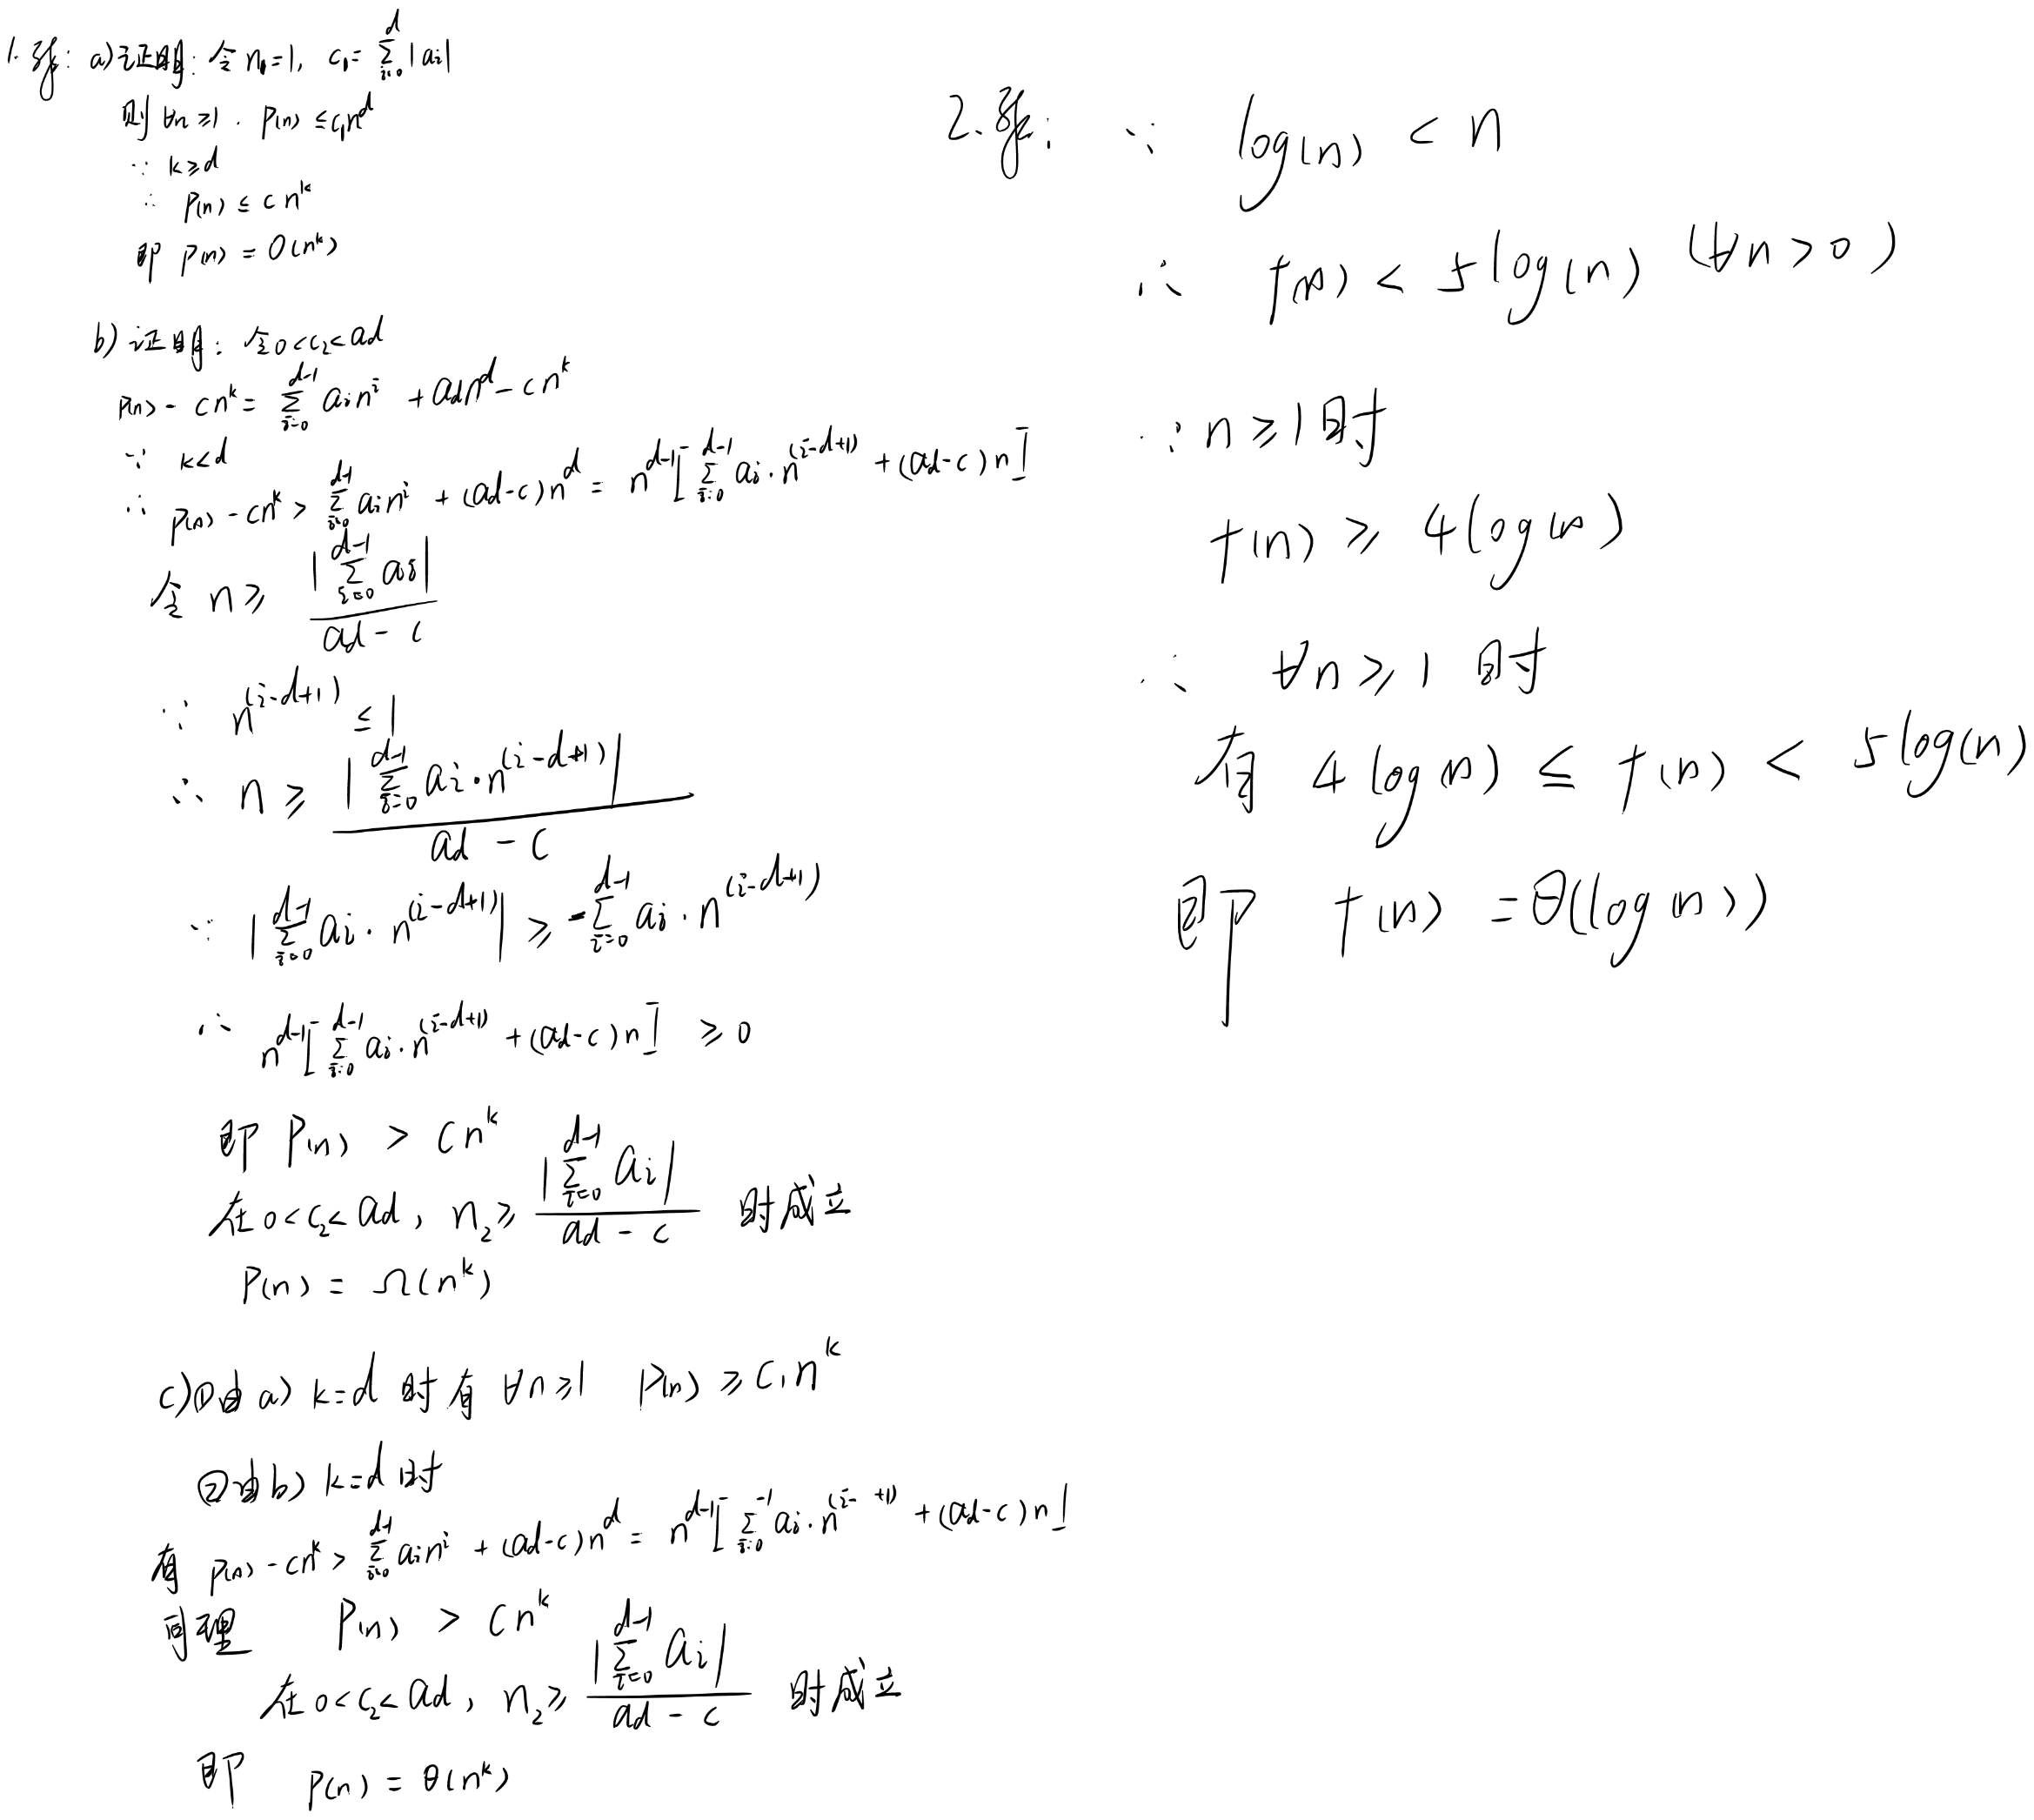 1.解: a)证明: 令 n₁=1, c₁= ∑_{i=0}^{d} |ai|
则 ∀n≥1. P(n) ≤ c₁n^d
∵ k≥d
∴ P(n) ≤ c n^k
即 P(n) = O(n^k)
b) 证明: 令0<c₂<ad
P(n) - cn^k = ∑_{i=0}^{d-1} ai n^i + ad n^d - cn^k
∵ k<d
∴ P(n) - cn^k > ∑_{i=0}^{d-1} ai n^i + (ad-c)n^d = n^{d-1}[∑_{i=0}^{d-1} ai·n^{(i-d+1)} + (ad-c)n]
令 n ≥ |∑_{i=0}^{d-1} ai| / (ad - c)
∵ n^{(i-d+1)} ≤ 1
∴ n ≥ |∑_{i=0}^{d-1} ai·n^{(i-d+1)}| / (ad - c)
∵ |∑_{i=0}^{d-1} ai·n^{(i-d+1)}| ≥ -∑_{i=0}^{d-1} ai·n^{(i-d+1)}
∴ n^{d-1}[∑_{i=0}^{d-1} ai·n^{(i-d+1)} + (ad-c)n] ≥ 0
即 P(n) > cn^k
在 0<c₂<ad, n₂ ≥ |∑_{i=0}^{d-1} ai| / (ad - c) 时成立
P(n) = Ω(n^k)
c)①由 a) k=d 时有 ∀n≥1 P(n) ≥ c₁n^k
②由b) k=d 时
有 P(n) - cn^k > ∑_{i=0}^{d-1} ai n^i + (ad-c)n^d = n^{d-1}[∑_{i=0}^{-1} ai·n^{(i- +1)} + (ad-c)n]
同理 P(n) > cn^k
在 0<c₂<ad, n₂ ≥ |∑_{i=0}^{d-1} ai| / (ad - c) 时成立
即 P(n) = θ(n^k)
2.解: ∵ log(n) < n
∴ f(n) < 5log(n) (∀n>0)
∵ n≥1时
f(n) ≥ 4log(n)
∴ ∀n≥1 时
有 4log(n) ≤ f(n) < 5log(n)
即 f(n) = θ(log(n))